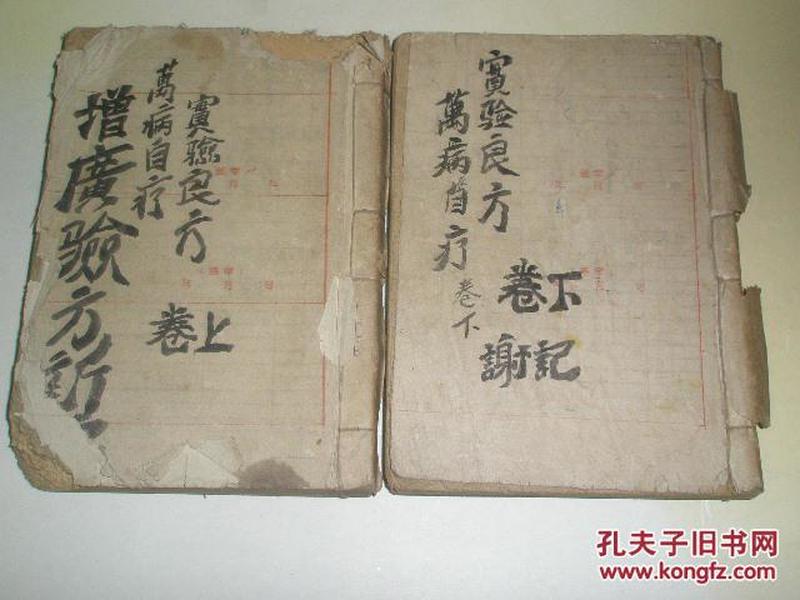 實驗良方
萬病自疗
增廣驗方新
卷上
實验良方
萬病自疗
卷下
卷下
謝記
孔夫子旧书网
www.kongfz.com